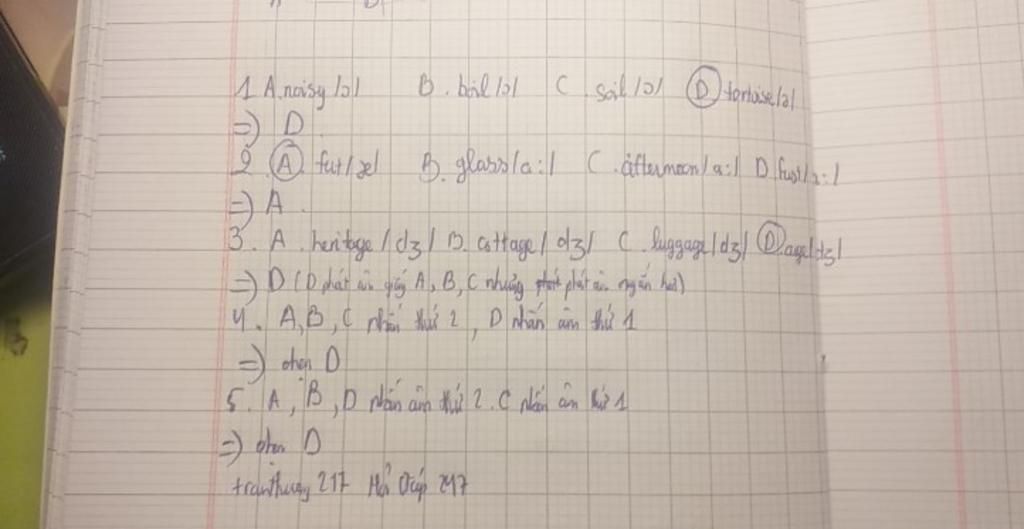 1 A. noisy /ɔ/ B. boil /ɔ/ C. soil /ɔ/ D tortoise /ə/
=) D.
2. A. fat /æ/ B. glass /a:/ C. afternoon /a:/ D. fast /a:/
=) A.
3. A. heritage /dʒ/ B. cottage /dʒ/ C. luggage /dʒ/ D. age /dʒ/
=) D (D phát âm giống A, B, C nhưng phát âm ngắn hơn)
4. A, B, C nhấn thứ 2, D nhấn âm thứ 1
=) chọn D
5. A, B, D nhấn âm thứ 2. C nhấn âm thứ 1
=) chọn D
217 Hỏi Đáp 247